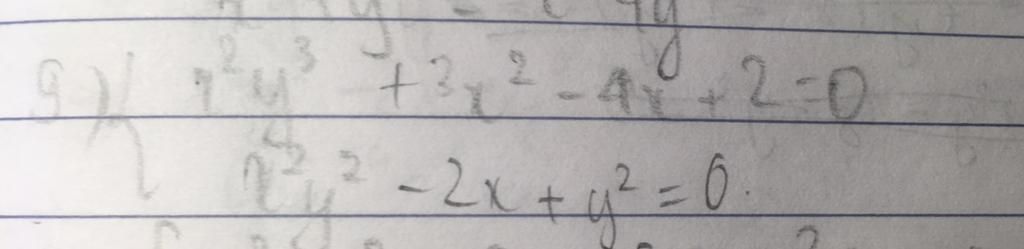 9) { x²y³ + 3x² - 4x + 2 = 0
x²y² - 2x + y² = 0.